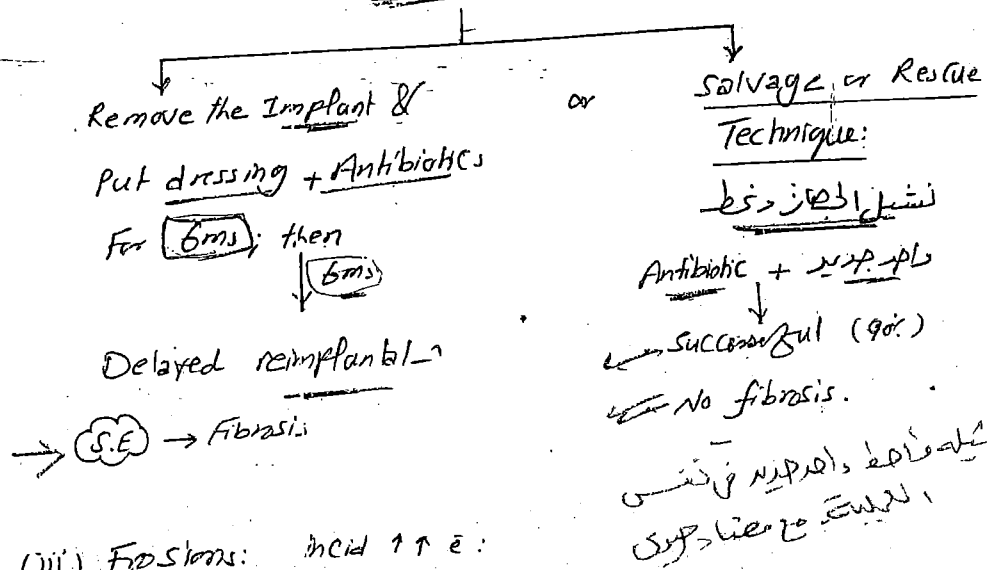 Remove the Implant &
Put dressing + Antibiotics
For 6ms; then
6ms
Delayed reimplantat
S.E → Fibrosis
or
Salvage or Rescue
Technique:
نشيل الجهاز ونحط
واحد جديد + Antibiotic
Successful (90%)
No fibrosis.
نشيله واحط واحد جديد في نفس
العملية مع مضاد حيوى
(iii) Erosions: incid ↑↑ ē: